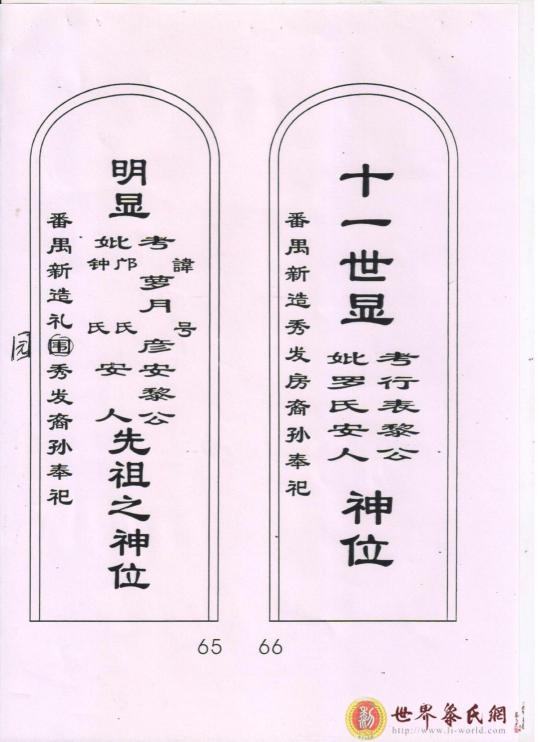 明显
諱号
考萝月彦安黎公
妣邝氏钟氏安人
先祖之神位
番禺新造礼围秀发裔孙奉祀
园
65
十一世显
考行表黎公
妣罗氏安人
神位
番禺新造秀发房裔孙奉祀
66
世界黎氏網
http://www.li-world.com